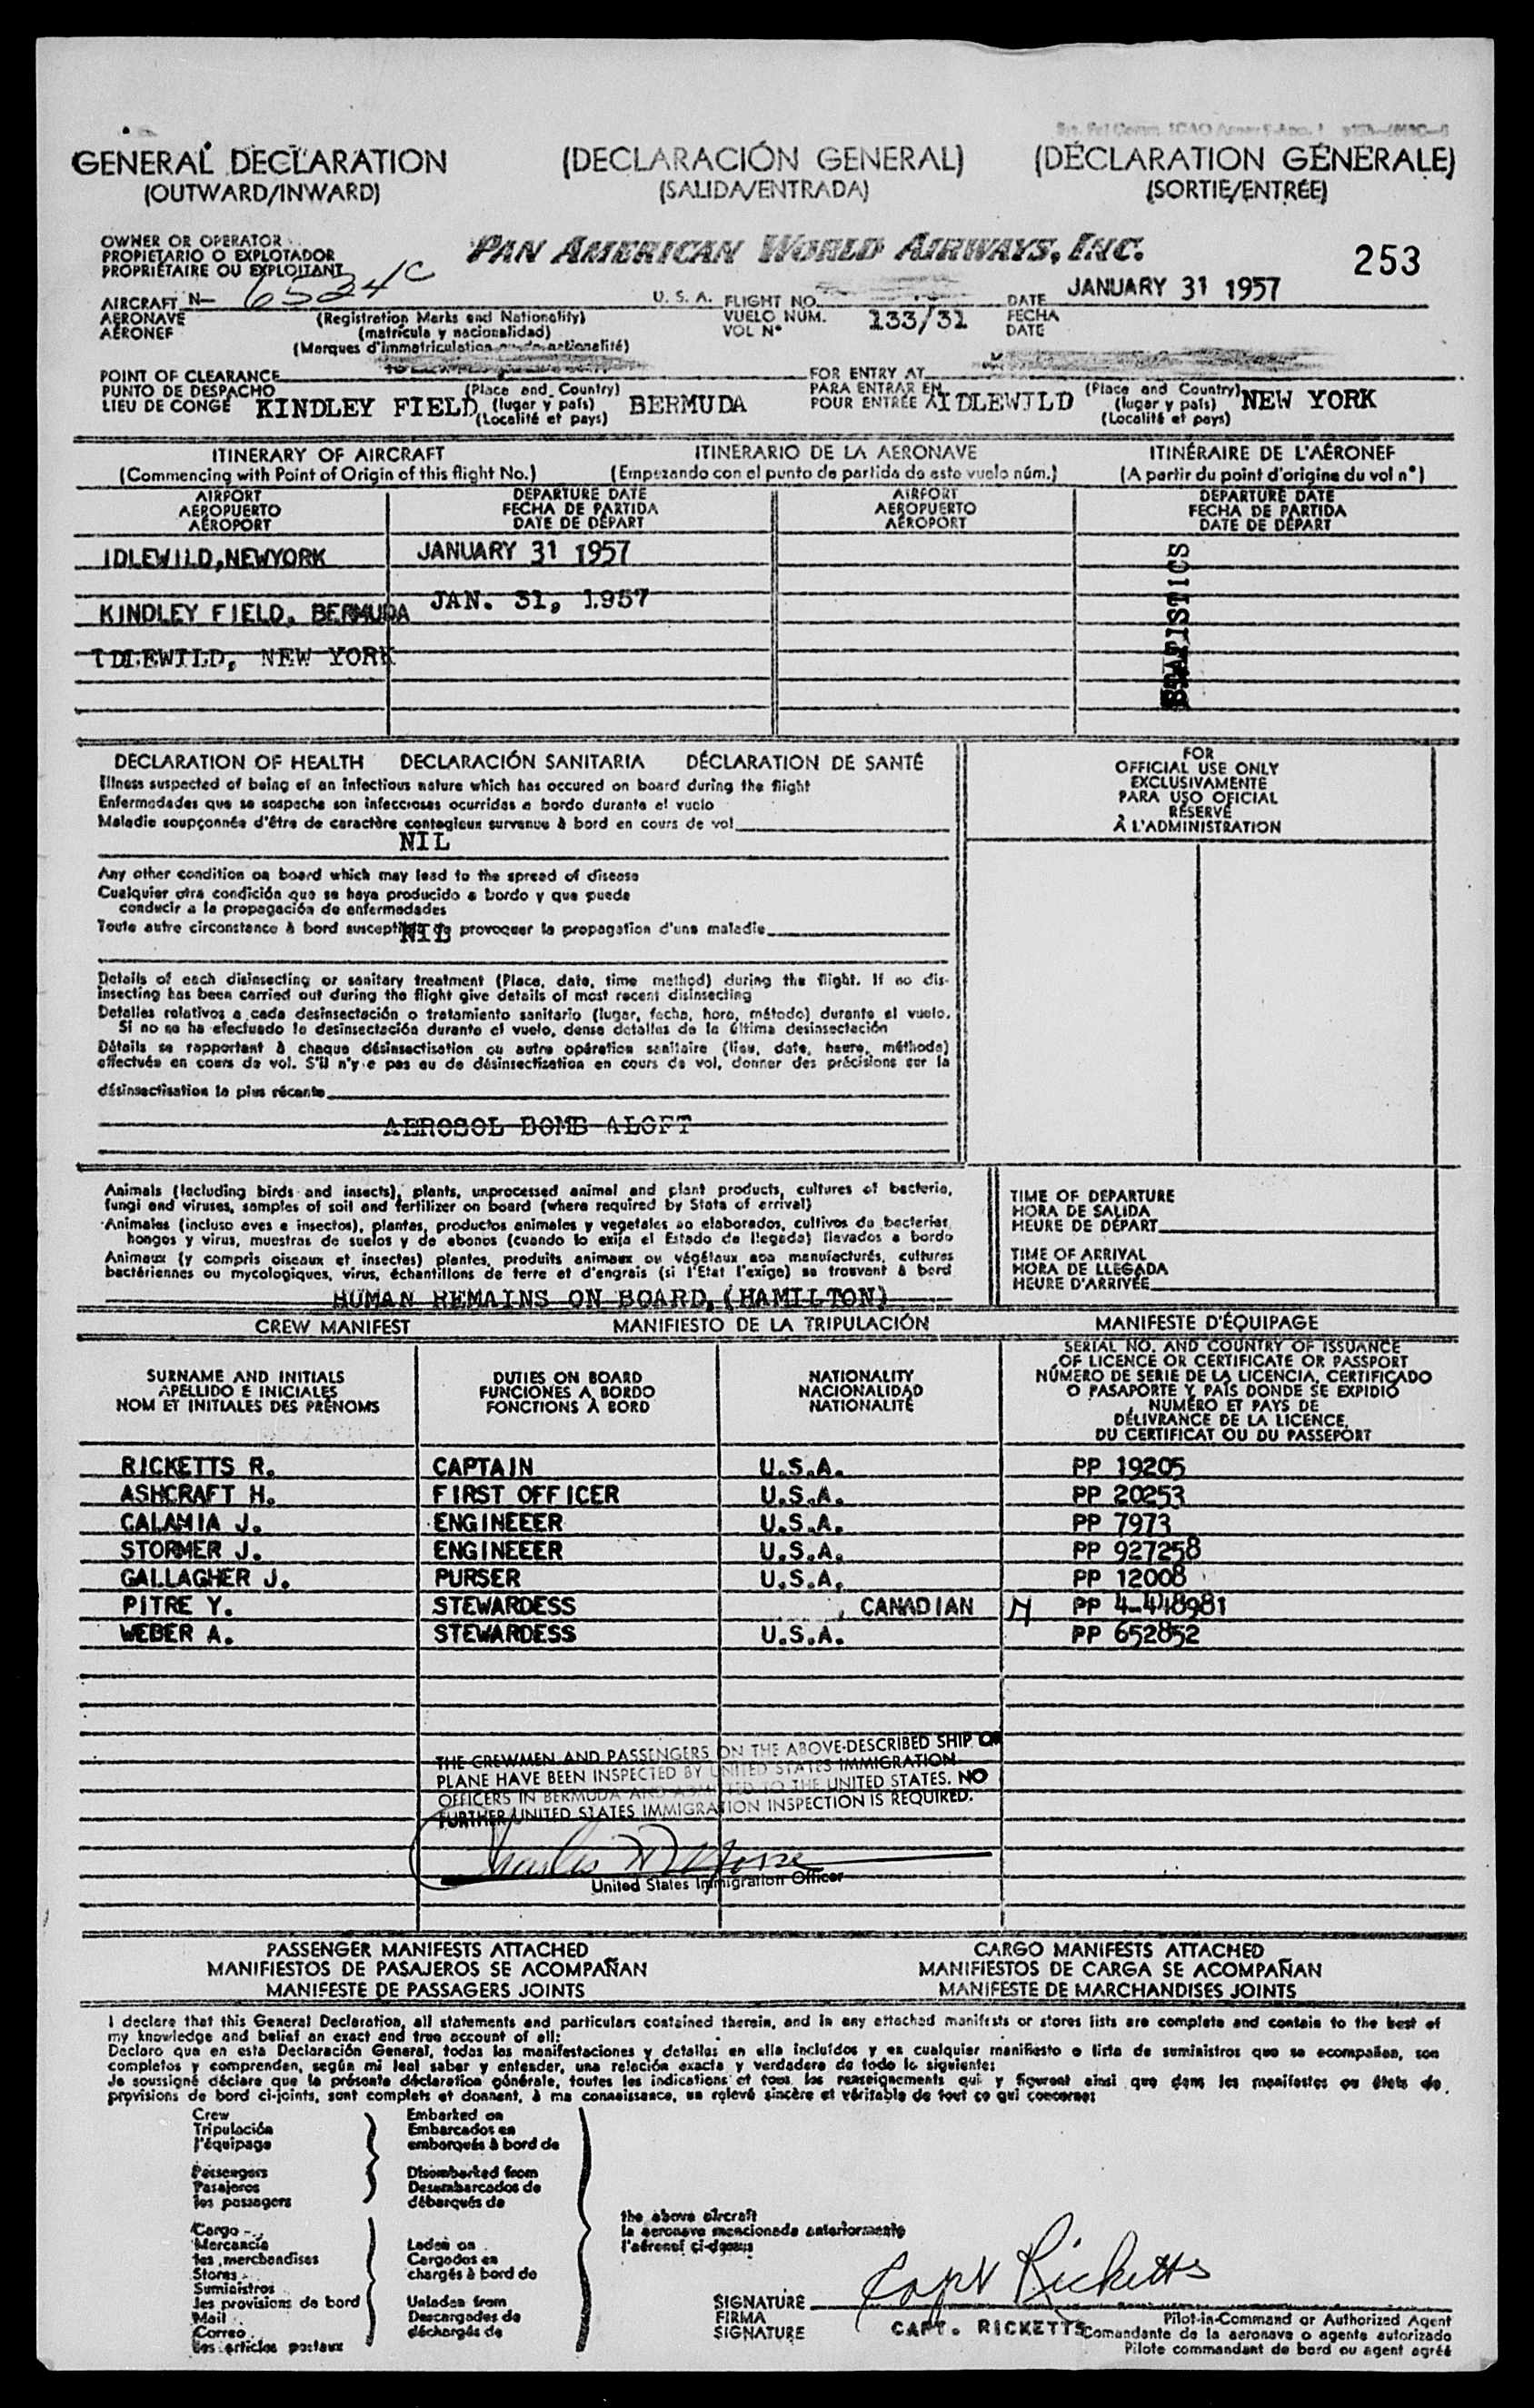 GENERAL DECLARATION (DECLARACIÓN GENERAL) (DÉCLARATION GÉNÉRALE)
(OUTWARD/INWARD) (SALIDA/ENTRADA) (SORTIE/ENTRÉE)
OWNER OR OPERATOR
PROPIETARIO O EXPLOTADOR
PROPRIÉTAIRE OU EXPLOITANT
PAN AMERICAN WORLD AIRWAYS, INC.
253
AIRCRAFT N— 6524C U. S. A. FLIGHT NO. DATE JANUARY 31 1957
AERONAVE (Registration Marks and Nationality) VUELO NÚM. 133/31 FECHA
AÉRONEF (matrícula y nacionalidad) VOL N° DATE
(Marques d'immatriculation nationalité)
POINT OF CLEARANCE FOR ENTRY AT
PUNTO DE DESPACHO (Place and Country) PARA ENTRAR EN (Place and Country)
LIEU DE CONGÉ KINDLEY FIELD (lugar y país) BERMUDA POUR ENTRÉE À IDLEWILD (lugar y país) NEW YORK
(Localité et pays) (Localité et pays)
ITINERARY OF AIRCRAFT ITINERARIO DE LA AERONAVE ITINÉRAIRE DE L'AÉRONEF
(Commencing with Point of Origin of this flight No.) (Empezando con el punto de partida de este vuelo núm.) (A partir du point d'origine du vol n°)
AIRPORT DEPARTURE DATE AIRPORT DEPARTURE DATE
AEROPUERTO FECHA DE PARTIDA AEROPUERTO FECHA DE PARTIDA
AÉROPORT DATE DE DÉPART AÉROPORT DATE DE DÉPART
IDLEWILD,NEWYORK JANUARY 31 1957
KINDLEY FIELD, BERMUDA JAN. 31, 1957
IDLEWILD, NEW YORK
STATISTICS
DECLARATION OF HEALTH DECLARACIÓN SANITARIA DÉCLARATION DE SANTÉ
Illness suspected of being of an infectious nature which has occured on board during the flight
Enfermedades que se sospecha son infecciosas ocurridas a bordo durante el vuelo
Maladie soupçonnée d'être de caractère contagieux survenue à bord en cours de vol
NIL
FOR
OFFICIAL USE ONLY
EXCLUSIVAMENTE
PARA USO OFICIAL
RÉSERVÉ
À L'ADMINISTRATION
Any other condition on board which may lead to the spread of disease
Cualquier otra condición que se haya producido a bordo y que puede
conducir a la propagación de enfermedades
Toute autre circonstance à bord susceptible de provoquer la propagation d'une maladie
NIL
Details of each disinsecting or sanitary treatment (Place, date, time method) during the flight. If no dis-
insecting has been carried out during the flight give details of most recent disinsecting
Detalles relativos a cada desinsectación o tratamiento sanitario (lugar, fecha, hora, método) durante el vuelo.
Si no se ha efectuado la desinsectación durante el vuelo, dense detalles de la última desinsectación
Détails se rapportant à chaque désinsectisation ou autre opération sanitaire (lieu, date, heure, méthode)
effectuée en cours de vol. S'il n'y e pas eu de désinsectisation en cours de vol, donner des précisions sur la
désinsectisation la plus récente
AEROSOL BOMB ALOFT
Animals (including birds and insects), plants, unprocessed animal and plant products, cultures of bacteria,
fungi and viruses, samples of soil and fertilizer on board (where required by State of arrival)
Animales (incluso aves e insectos), plantas, productos animales y vegetales no elaborados, cultivos de bacterias,
hongos y virus, muestras de suelos y de abonos (cuando lo exija el Estado de llegada) llevados a bordo
Animaux (y compris oiseaux et insectes) plantes, produits animaux ou végétaux non manufacturés, cultures
bactériennes ou mycologiques, virus, échantillons de terre et d'engrais (si l'Etat l'exige) se trouvant à bord
HUMAN REMAINS ON BOARD,(HAMILTON)
TIME OF DEPARTURE
HORA DE SALIDA
HEURE DE DÉPART
TIME OF ARRIVAL
HORA DE LLEGADA
HEURE D'ARRIVÉE
CREW MANIFEST MANIFIESTO DE LA TRIPULACIÓN MANIFESTE D'ÉQUIPAGE
SURNAME AND INITIALS
APELLIDO E INICIALES
NOM ET INITIALES DES PRÉNOMS
DUTIES ON BOARD
FUNCIONES A BORDO
FONCTIONS À BORD
NATIONALITY
NACIONALIDAD
NATIONALITÉ
SERIAL NO. AND COUNTRY OF ISSUANCE
OF LICENCE OR CERTIFICATE OR PASSPORT
NÚMERO DE SERIE DE LA LICENCIA, CERTIFICADO
O PASAPORTE Y PAÍS DONDE SE EXPIDIÓ
NUMÉRO ET PAYS DE
DÉLIVRANCE DE LA LICENCE,
DU CERTIFICAT OU DU PASSEPORT
RICKETTS R. CAPTAIN U.S.A. PP 19205
ASHCRAFT H. FIRST OFFICER U.S.A. PP 20253
CALAMIA J. ENGINEEER U.S.A. PP 7973
STORMER J. ENGINEEER U.S.A. PP 927258
GALLAGHER J. PURSER U.S.A. PP 12008
PITRE Y. STEWARDESS CANADIAN N PP 4-448981
WEBER A. STEWARDESS U.S.A. PP 652852
THE CREWMEN AND PASSENGERS ON THE ABOVE-DESCRIBED SHIP OR
PLANE HAVE BEEN INSPECTED BY UNITED STATES IMMIGRATION
OFFICERS IN BERMUDA AND ADMITTED TO THE UNITED STATES. NO
FURTHER UNITED STATES IMMIGRATION INSPECTION IS REQUIRED.
Charles
United States Immigration Officer
PASSENGER MANIFESTS ATTACHED CARGO MANIFESTS ATTACHED
MANIFIESTOS DE PASAJEROS SE ACOMPAÑAN MANIFIESTOS DE CARGA SE ACOMPAÑAN
MANIFESTE DE PASSAGERS JOINTS MANIFESTE DE MARCHANDISES JOINTS
I declare that this General Declaration, all statements and particulars contained therein, and in any attached manifests or stores lists are complete and contain to the best of
my knowledge and belief an exact and true account of all:
Declaro que en esta Declaración General, todas las manifestaciones y detalles en ella incluídos y en cualquier manifiesto o lista de suministros que se acompañan, son
completos y comprenden, según mi leal saber y entender, una relación exacta y verdadera de todo lo siguiente:
Je soussigné déclare que la présente déclaration générale, toutes les indications et tous les renseignements qui y figurent ainsi que dans les manifestes ou états de
provisions de bord ci-joints, sont complets et donnent, à ma connaissance, un relevé sincère et véritable de tout ce qui concerne:
Crew Embarked on
Tripulación Embarcados en
l'équipage embarqués à bord de
Passengers Disembarked from
Pasajeros Desembarcados de
les passagers débarqués de
the above aircraft
la aeronave mencionada anteriormente
l'aéronef ci-dessus
Cargo
Mercancía Laden on
les merchandises Cargados en
Stores chargés à bord de
Suministros
les provisions de bord Unladen from
Mail Descargados de
Correo déchargés de
les articles postaux
SIGNATURE Capt Ricketts
FIRMA
SIGNATURE
CAPT. RICKETTS
Pilot-in-Command or Authorized Agent
Comandante de la aeronave o agente autorizado
Pilote commandant de bord ou agent agréé